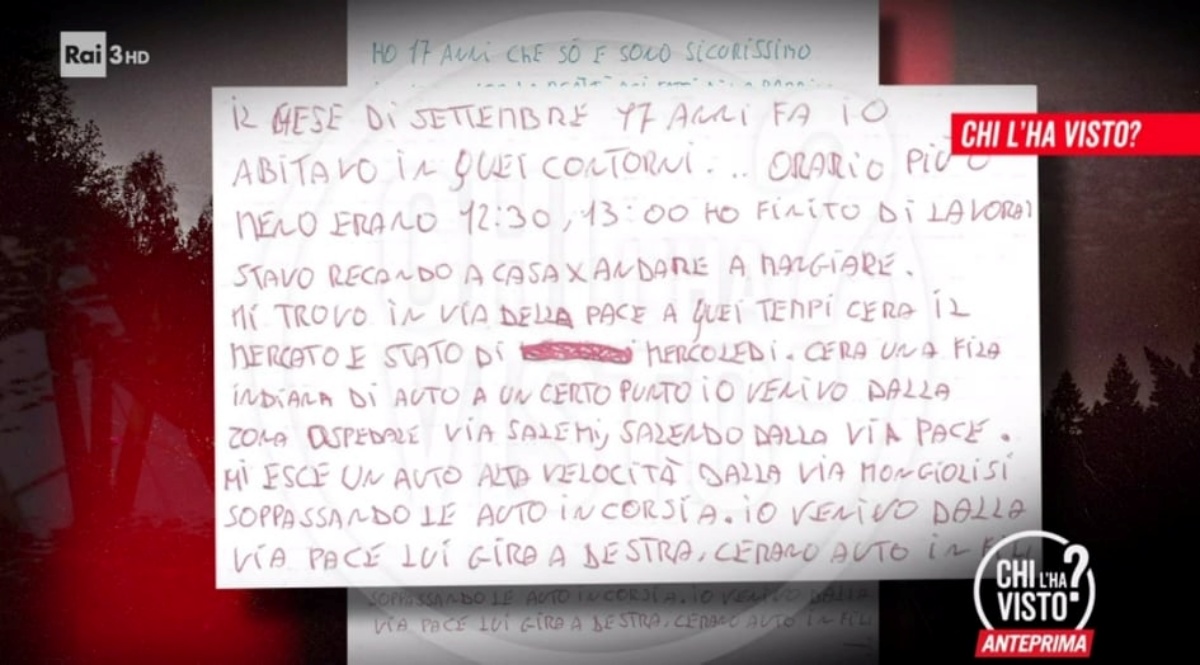 Rai 3HD
HO 17 ANNI CHE SÒ E SONO SICURISSIMO
CHI L'HA VISTO?
IL MESE DI SETTEMBRE 17 ANNI FA IO
ABITAVO IN QUEI CONTORNI... ORARIO PIÙ O
MENO ERANO 12:30, 13:00 HO FINITO DI LAVORA
STAVO RECANDO A CASA X ANDARE A MANGIARE.
MI TROVO IN VIA DELLA PACE A QUEI TEMPI CERA IL
MERCATO E STATO DI MERCOLEDI. CERA UNA FILA
INDIANA DI AUTO A UN CERTO PUNTO IO VENIVO DALLA
ZONA OSPEDALE VIA SALEMI, SALENDO DALLA VIA PACE.
MI ESCE UN AUTO ALTA VELOCITÀ DALLA VIA MONGIOLISI
SOPPASSANDO LE AUTO IN CORSIA. IO VENIVO DALLA
VIA PACE LUI GIRA A DESTRA, CERANO AUTO IN FIL
SOPPASSANDO LE AUTO IN CORSIA. IO VENIVO DALLA
VIA PACE LUI GIRA A DESTRA, CERANO AUTO IN FIL
CHI L'HA VISTO?
ANTEPRIMA